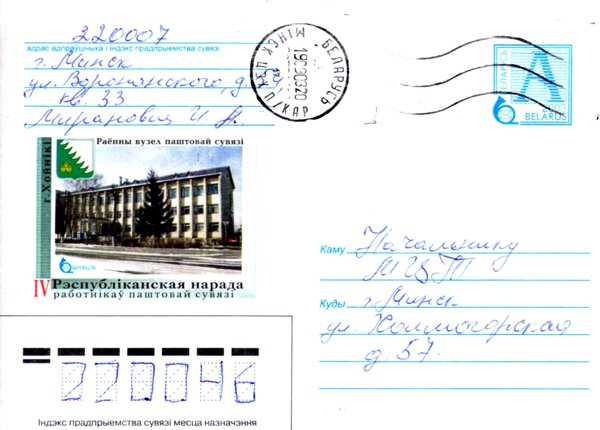 220007
адрас адпраўшчыка і індэкс прадпрыемства сувязі
г. Минск
ул. Воронянского, д.
кв. 33
Миранович И.
МІНСК БЕЛАРУСЬ
КАР
БЕЛАРУСЬ
A
BELARUS
Раённы вузел паштовай сувязі
г. Хойнікі
IV Рэспубліканская нарада
работнікаў паштовай сувязі
Каму Начальнику
МЦТ
Куды г. Минск
ул. Холмогорская
д. 57.
220046
Індэкс прадпрыемства сувязі месца назначэння